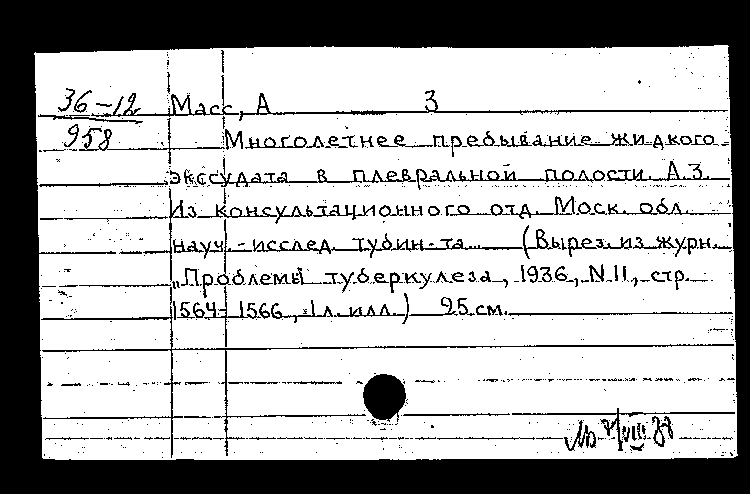 36-12
958
Масс, А 3
Многолетнее пребывание жидкого
экссудата в плевральной полости. А.З.
Из консультационного отд. Моск. обл.
науч.-исслед. тубин-та. (Вырез. из журн.
„Проблемы туберкулеза, 1936, N 11, стр.
1564-1566, 1 л. илл.) 25 см.